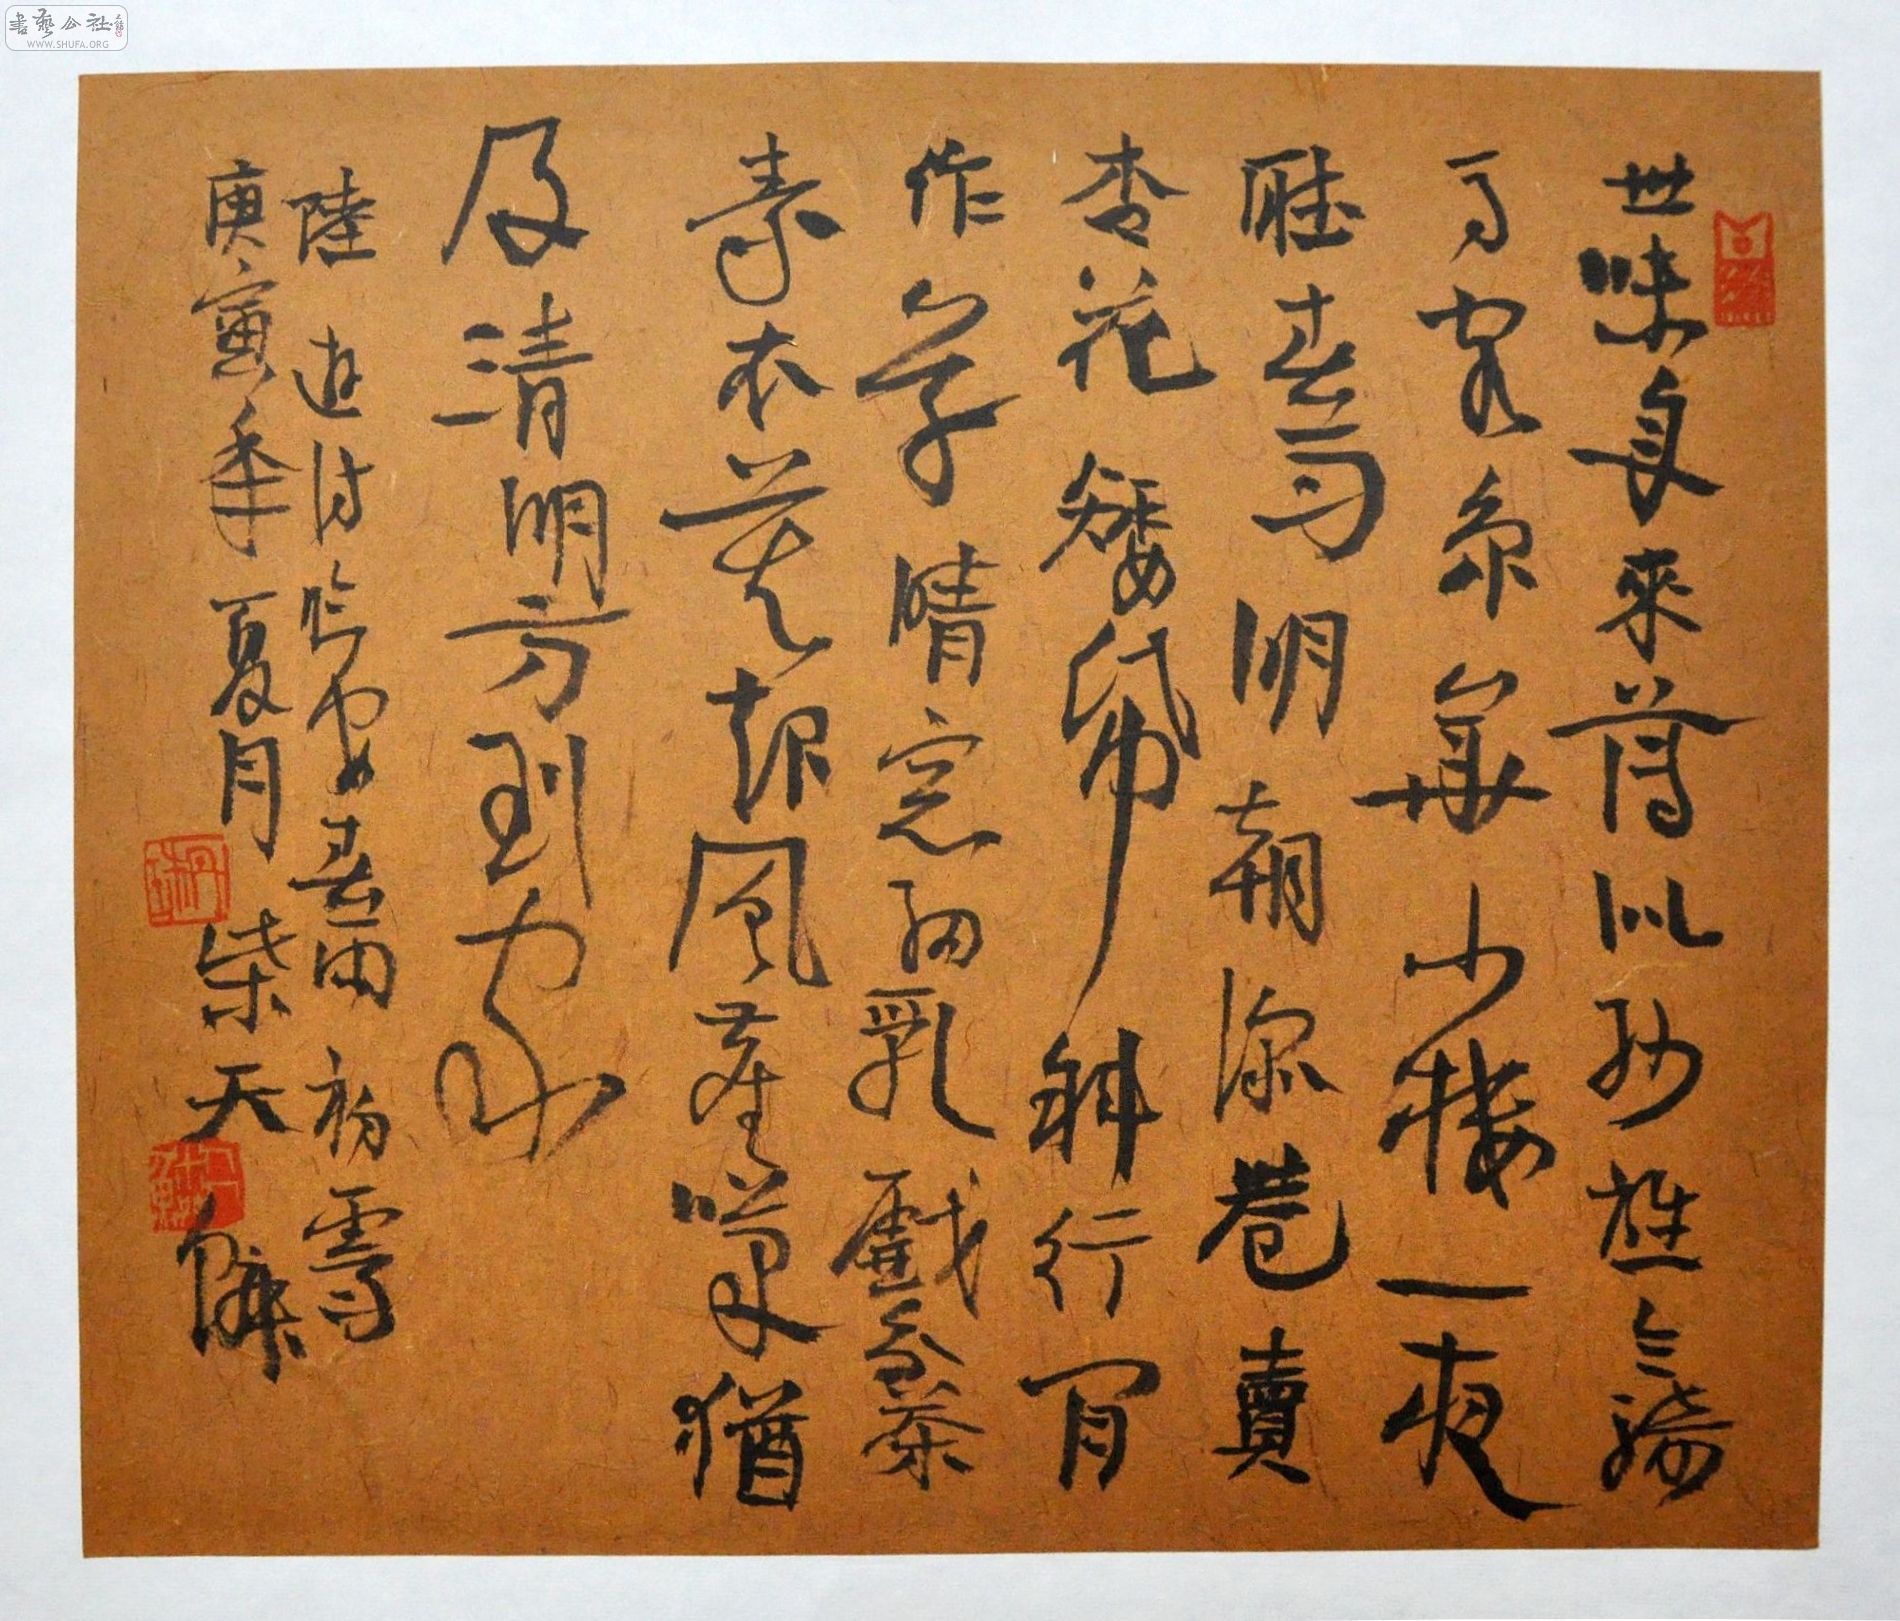 書藝公社
WWW.SHUFA.ORG
世味年來薄似紗誰令騎
馬客京華小樓一夜
聽春雨明朝深巷賣
杏花矮帋斜行閒
作草晴窓細乳戲分茶
素衣莫起風塵嘆猶
及清明方到家
陸游詩臨安春雨初霽
庚寅年夏月柴天